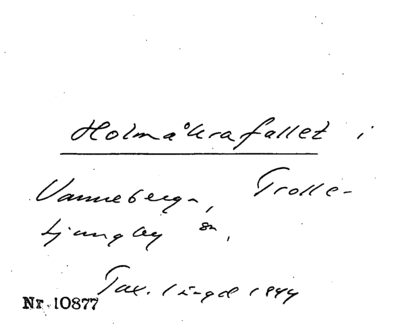 Holmåkrafallet i
Vanneberga, Trolle-
ljungby sn,
Tax. längd 1944
Nr 10877